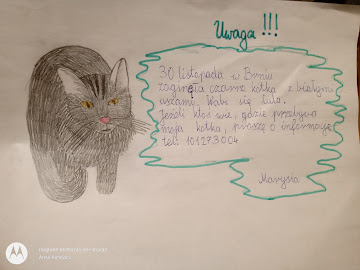 Uwaga !!!
30 listopada w Brniu
zaginęła czarna kotka z białymi
uszami. Wabi się Lula.
Jeżeli ktoś wie, gdzie przebywa
moja kotka, proszę o informację
tel: 101273004
Marysia